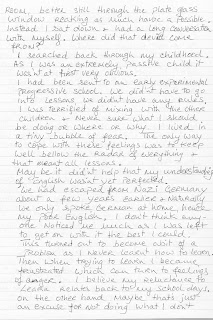 room, better still through the plate glass
window reaking as much havoc as possible.
Instead I sat down & had a long conversation
with myself. Where did that desire come
from?
I searched back through my childhood.
As I was an extremely passive child it
wasn't at first very obvious.
I had been sent to an early experimental
progressive school. We didn't have to go
into lessons we didn't have any rules,
I was terrified of mixing with the other
children & Never sure what I should
be doing or where or why. I lived in
a tiny bubble of fear. The only way
to cope with these feelings was to keep
well below the radar of everything &
that meant all lessons.
May be it didn't help that my understanding
of English wasn't yet perfect.
We had escaped from Nazi Germany
about a few years earlier & naturally
we only spoke German at home, hence
my poor English. I don't think any-
one noticed me much as I was left
to get on with it the best I could.
This turned out to become abit of a
problem as I never learnt how to learn.
Then when trying to learn I became
frustrated which can turn to feelings
of anger. I believe my reluctance to
learn relates back to my school days,
on the other hand maybe thats just
an excuse for not doing what I don't